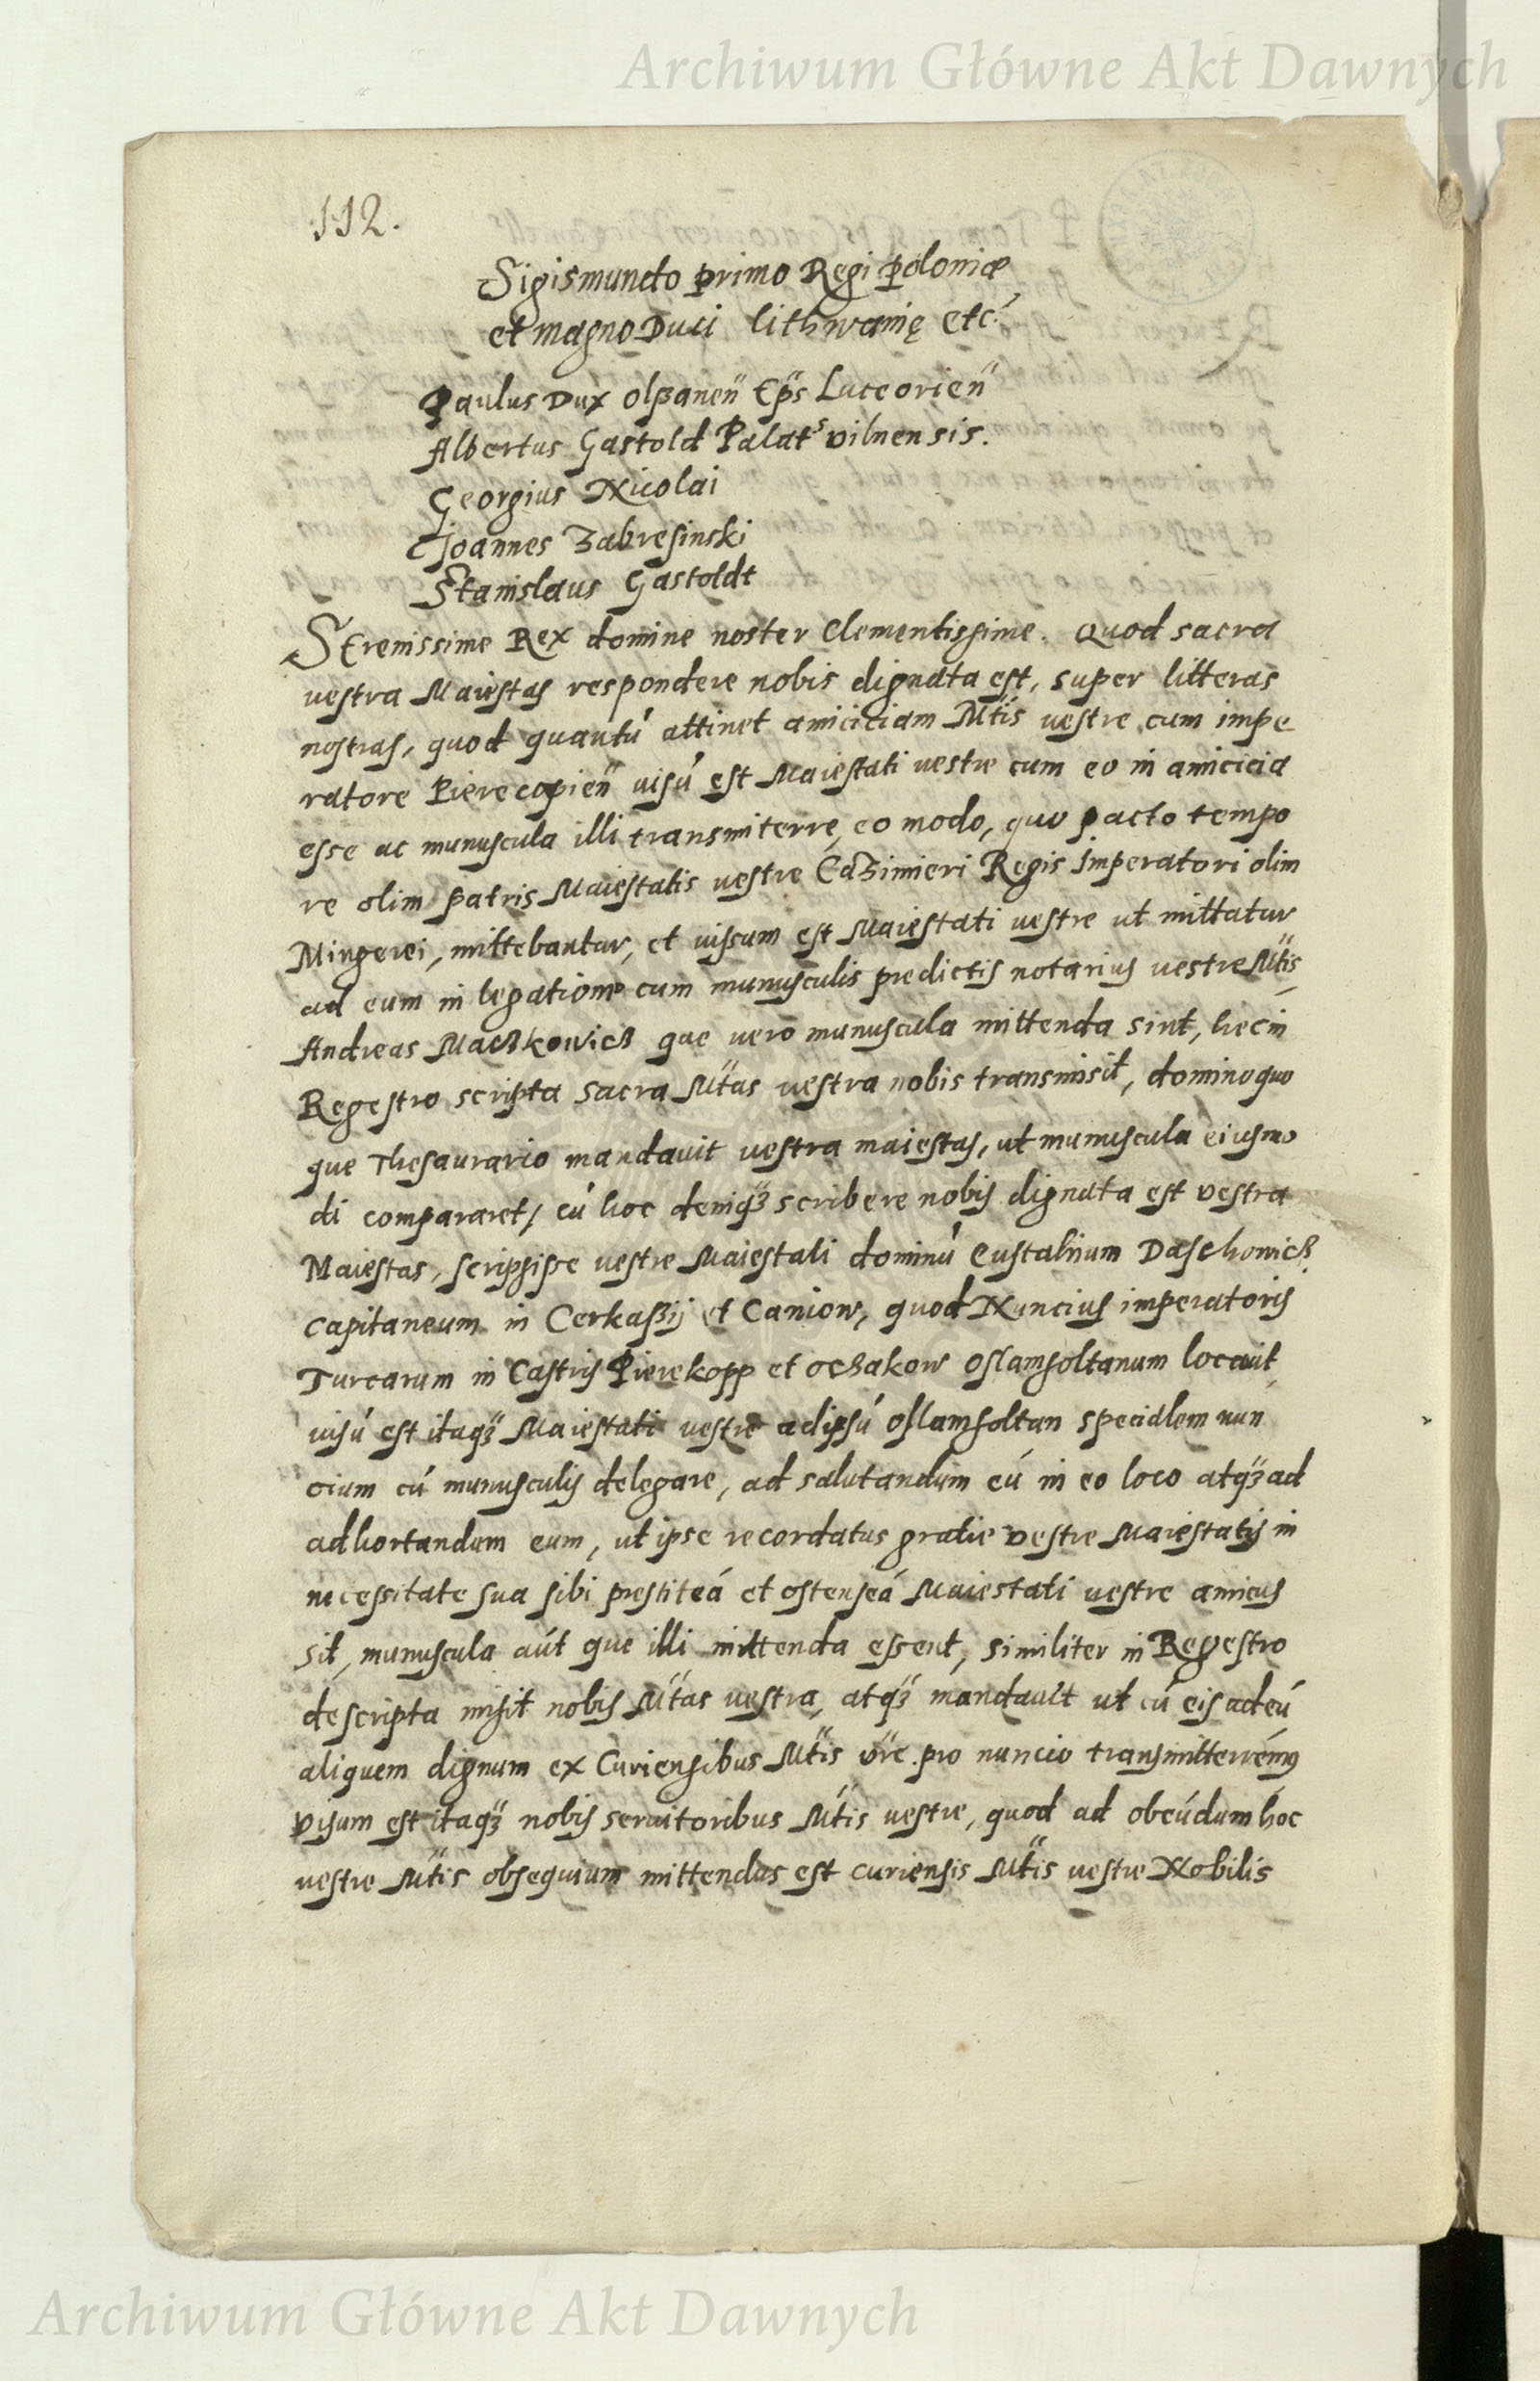 Archiwum Główne Akt Dawnych
112.
Sigismundo primo Regi Poloniæ
et magno Duci lithwanię etc.
Paulus Dux olßaneñ Ep̃s Luceorieñ
Albertus Gastold Palat⁹ vilnensis.
Georgius Nicolai
Joannes Zabresinski
Stanislaus Gastoldt
SErenissime Rex domine noster Clementissime. Quod sacra
vestra Maiestas respondere nobis dignata est, super litteras
nostras, quod quantú attinet amiciciam Mtis vestre cum impe
ratore Pierecopieñ uisú est Maiestati vestre cum eo in amicicia
esse ac munuscula illi transmiterre, eo modo, quo pacto tempo
re olim patris Maiestatis vestre Cazimieri Regis Imperatori olim
Mingerei, mittebantur, et uissum est Maiestati vestre ut mittatur
ad eum in legatione cum munusculis predictis notarius vestre Mtis
Andreas Maczkowicz gae vero munuscula mittenda sint, hec in
Regestro scripta sacra Mtas vestra nobis transmisit, domino quo
que Thesaurario mandauit vestra maiestas, ut munuscula eiusmo
di compararet, cú hoc deniqz scribere nobis dignata est vestra
Maiestas, scripsisse vestre Maiestati dominú Eustahium Daschowicz
capitaneum in Cerkaßij et Caniow, quod Nuncius imperatoris
Turcarum in Castris Pierekopp et oczakow oslamsoltanum locauit,
uisú est itaqz Maiestati vestre ad ipsú oslamsoltan specialem nun
cium cú munusculis delegare, ad salutandum eú in eo loco atqz ad
adhortandum eum, ut ipse recordatus gratie vestre Maiestatis in
necessitate sua sibi prestiteá et ostenseá Maiestati vestre amicus
sit, munuscula aút que illi mittenda essent, similiter in Regestro
descripta misit nobis Mtas vestra, atqz mandauit ut cú eis ad eú
aliquem dignum ex Curiensibus Mtis vrẽ pro nuncio transmitterremus
visum est itaqz nobis seruitoribus Mtis vestre, quod ad obeúdum hoc
vestre Mtis obsequium mittendus est curiensis Mtis vestre Nobilis
Archiwum Główne Akt Dawnych